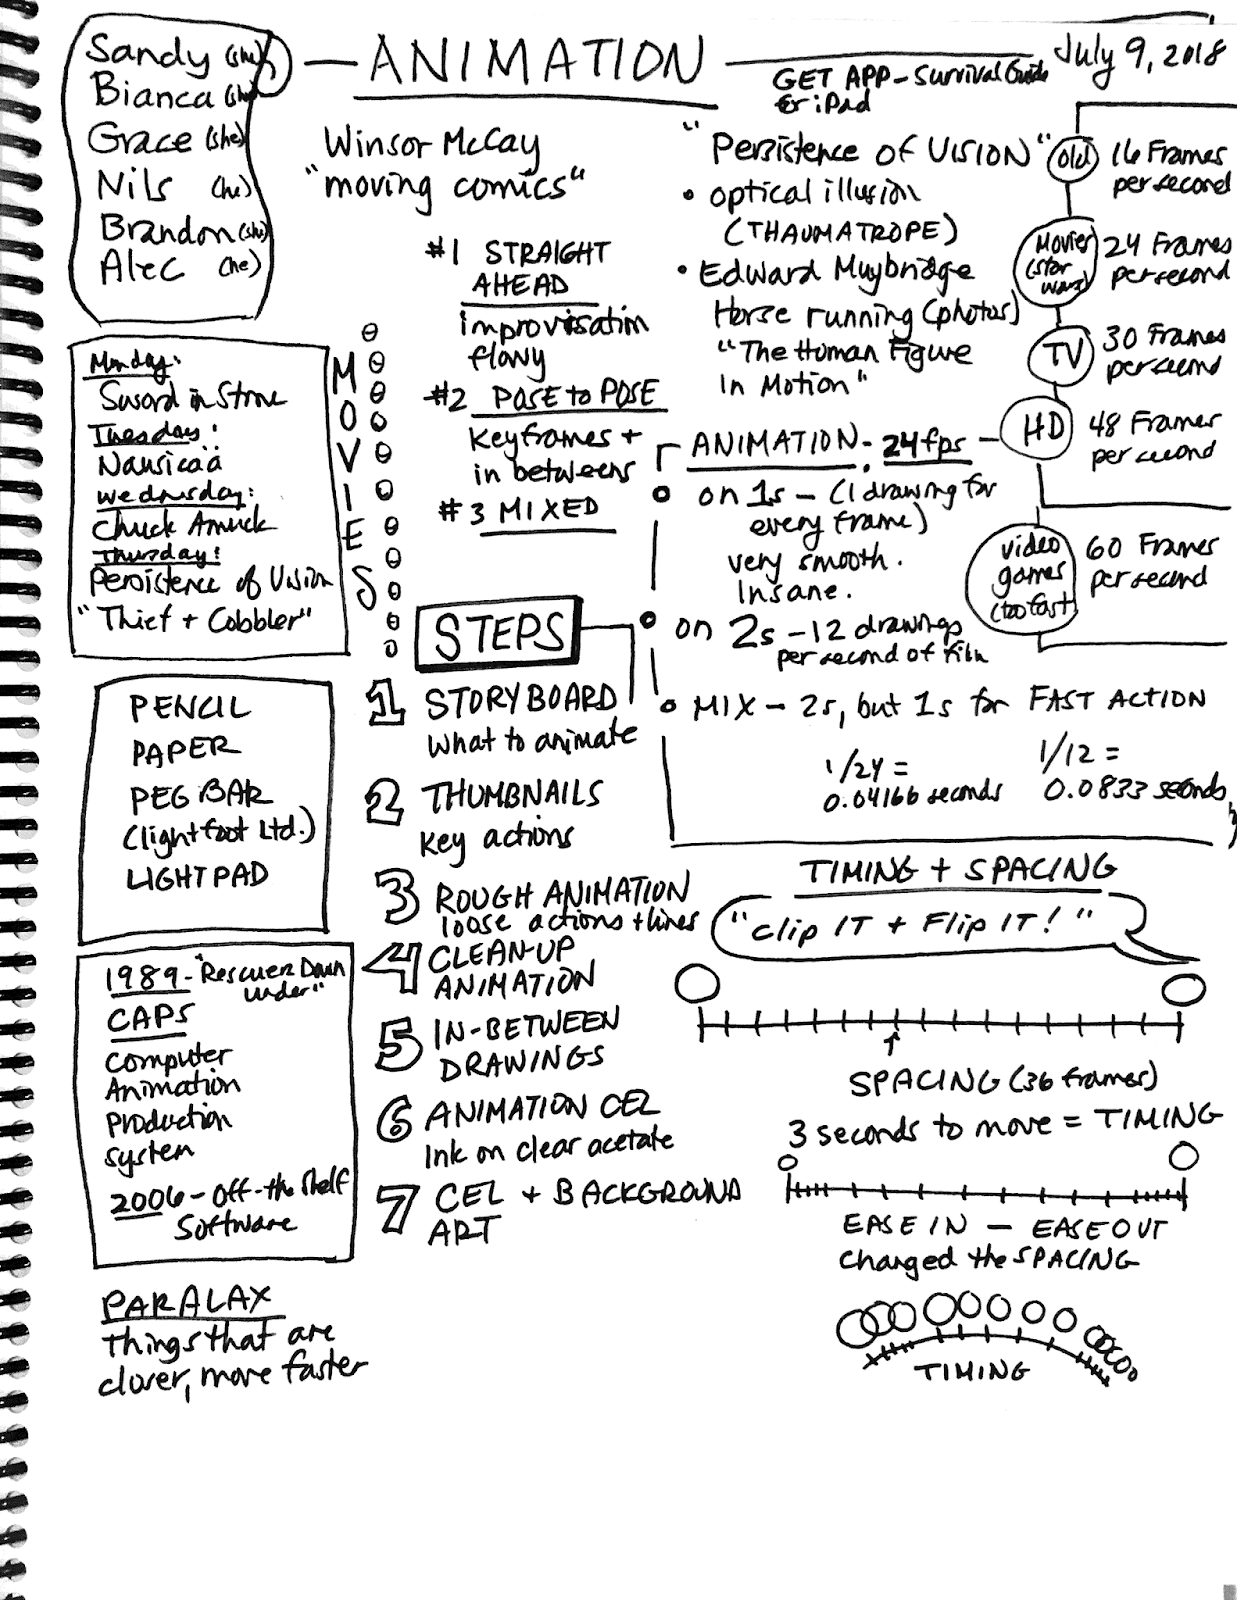 Sandy (she)
Bianca (she)
Grace (she)
Nils (he)
Brandon (she)
Alec (he)
ANIMATION
July 9, 2018
GET APP - Survival Guide
& iPad
Winsor McCay
"moving comics"
#1 STRAIGHT
AHEAD
improvisation
flowy
#2 POSE to POSE
Keyframes +
in betweens
#3 MIXED
"Persistence of VISION"
• optical illusion
(THAUMATROPE)
• Edward Muybridge
Horse running (photos)
"The Human Figure
in Motion"
old
16 Frames
per second
Movies
(Star
Wars)
24 Frames
per second
TV
30 Frames
per second
HD
48 Frames
per second
video
games
(too fast)
60 Frames
per second
ANIMATION - 24 fps
on 1s - (1 drawing for
every frame)
very smooth.
Insane.
on 2s - 12 drawings
per second of film
MIX - 2s, but 1s for FAST ACTION
1/24 =
0.04166 seconds
1/12 =
0.0833 seconds
Monday:
Sword in Stone
Tuesday:
Nausicaä
Wednesday:
Chuck Amuck
Thursday:
Persistence of Vision
"Thief + Cobbler"
MOVIES
PENCIL
PAPER
PEG BAR
(Lightfoot Ltd.)
LIGHT PAD
1989 - "Rescuers Down
Under"
CAPS
Computer
Animation
Production
System
2006 - Off-the Shelf
Software
PARALAX
Things that are
closer, move faster
STEPS
1 STORYBOARD
What to animate
2 THUMBNAILS
Key actions
3 ROUGH ANIMATION
loose actions + lines
4 CLEAN-UP
ANIMATION
5 IN-BETWEEN
DRAWINGS
6 ANIMATION CEL
Ink on clear acetate
7 CEL + BACKGROUND
ART
TIMING + SPACING
"Clip IT + Flip IT!"
SPACING (36 frames)
3 seconds to move = TIMING
EASE IN - EASE OUT
Changed the SPACING
TIMING